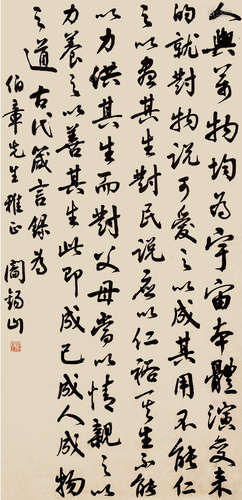 人與萬物均為宇宙本體演變來
的就對物說可愛之以成其用不能仁
之以盡其生對民說應以仁裕其生不能
以力供其生而對父母當以情親之以
力養之以善其生此即成己成人成物
之道 古代箴言錄為
伯章先生雅正 閻錫山